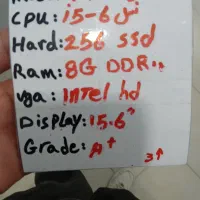 cpu: i5-6
Hard: 256 ssd
Ram: 8G DDR
vga: intel hd
Display: 15.6"
Grade: A+
3↑